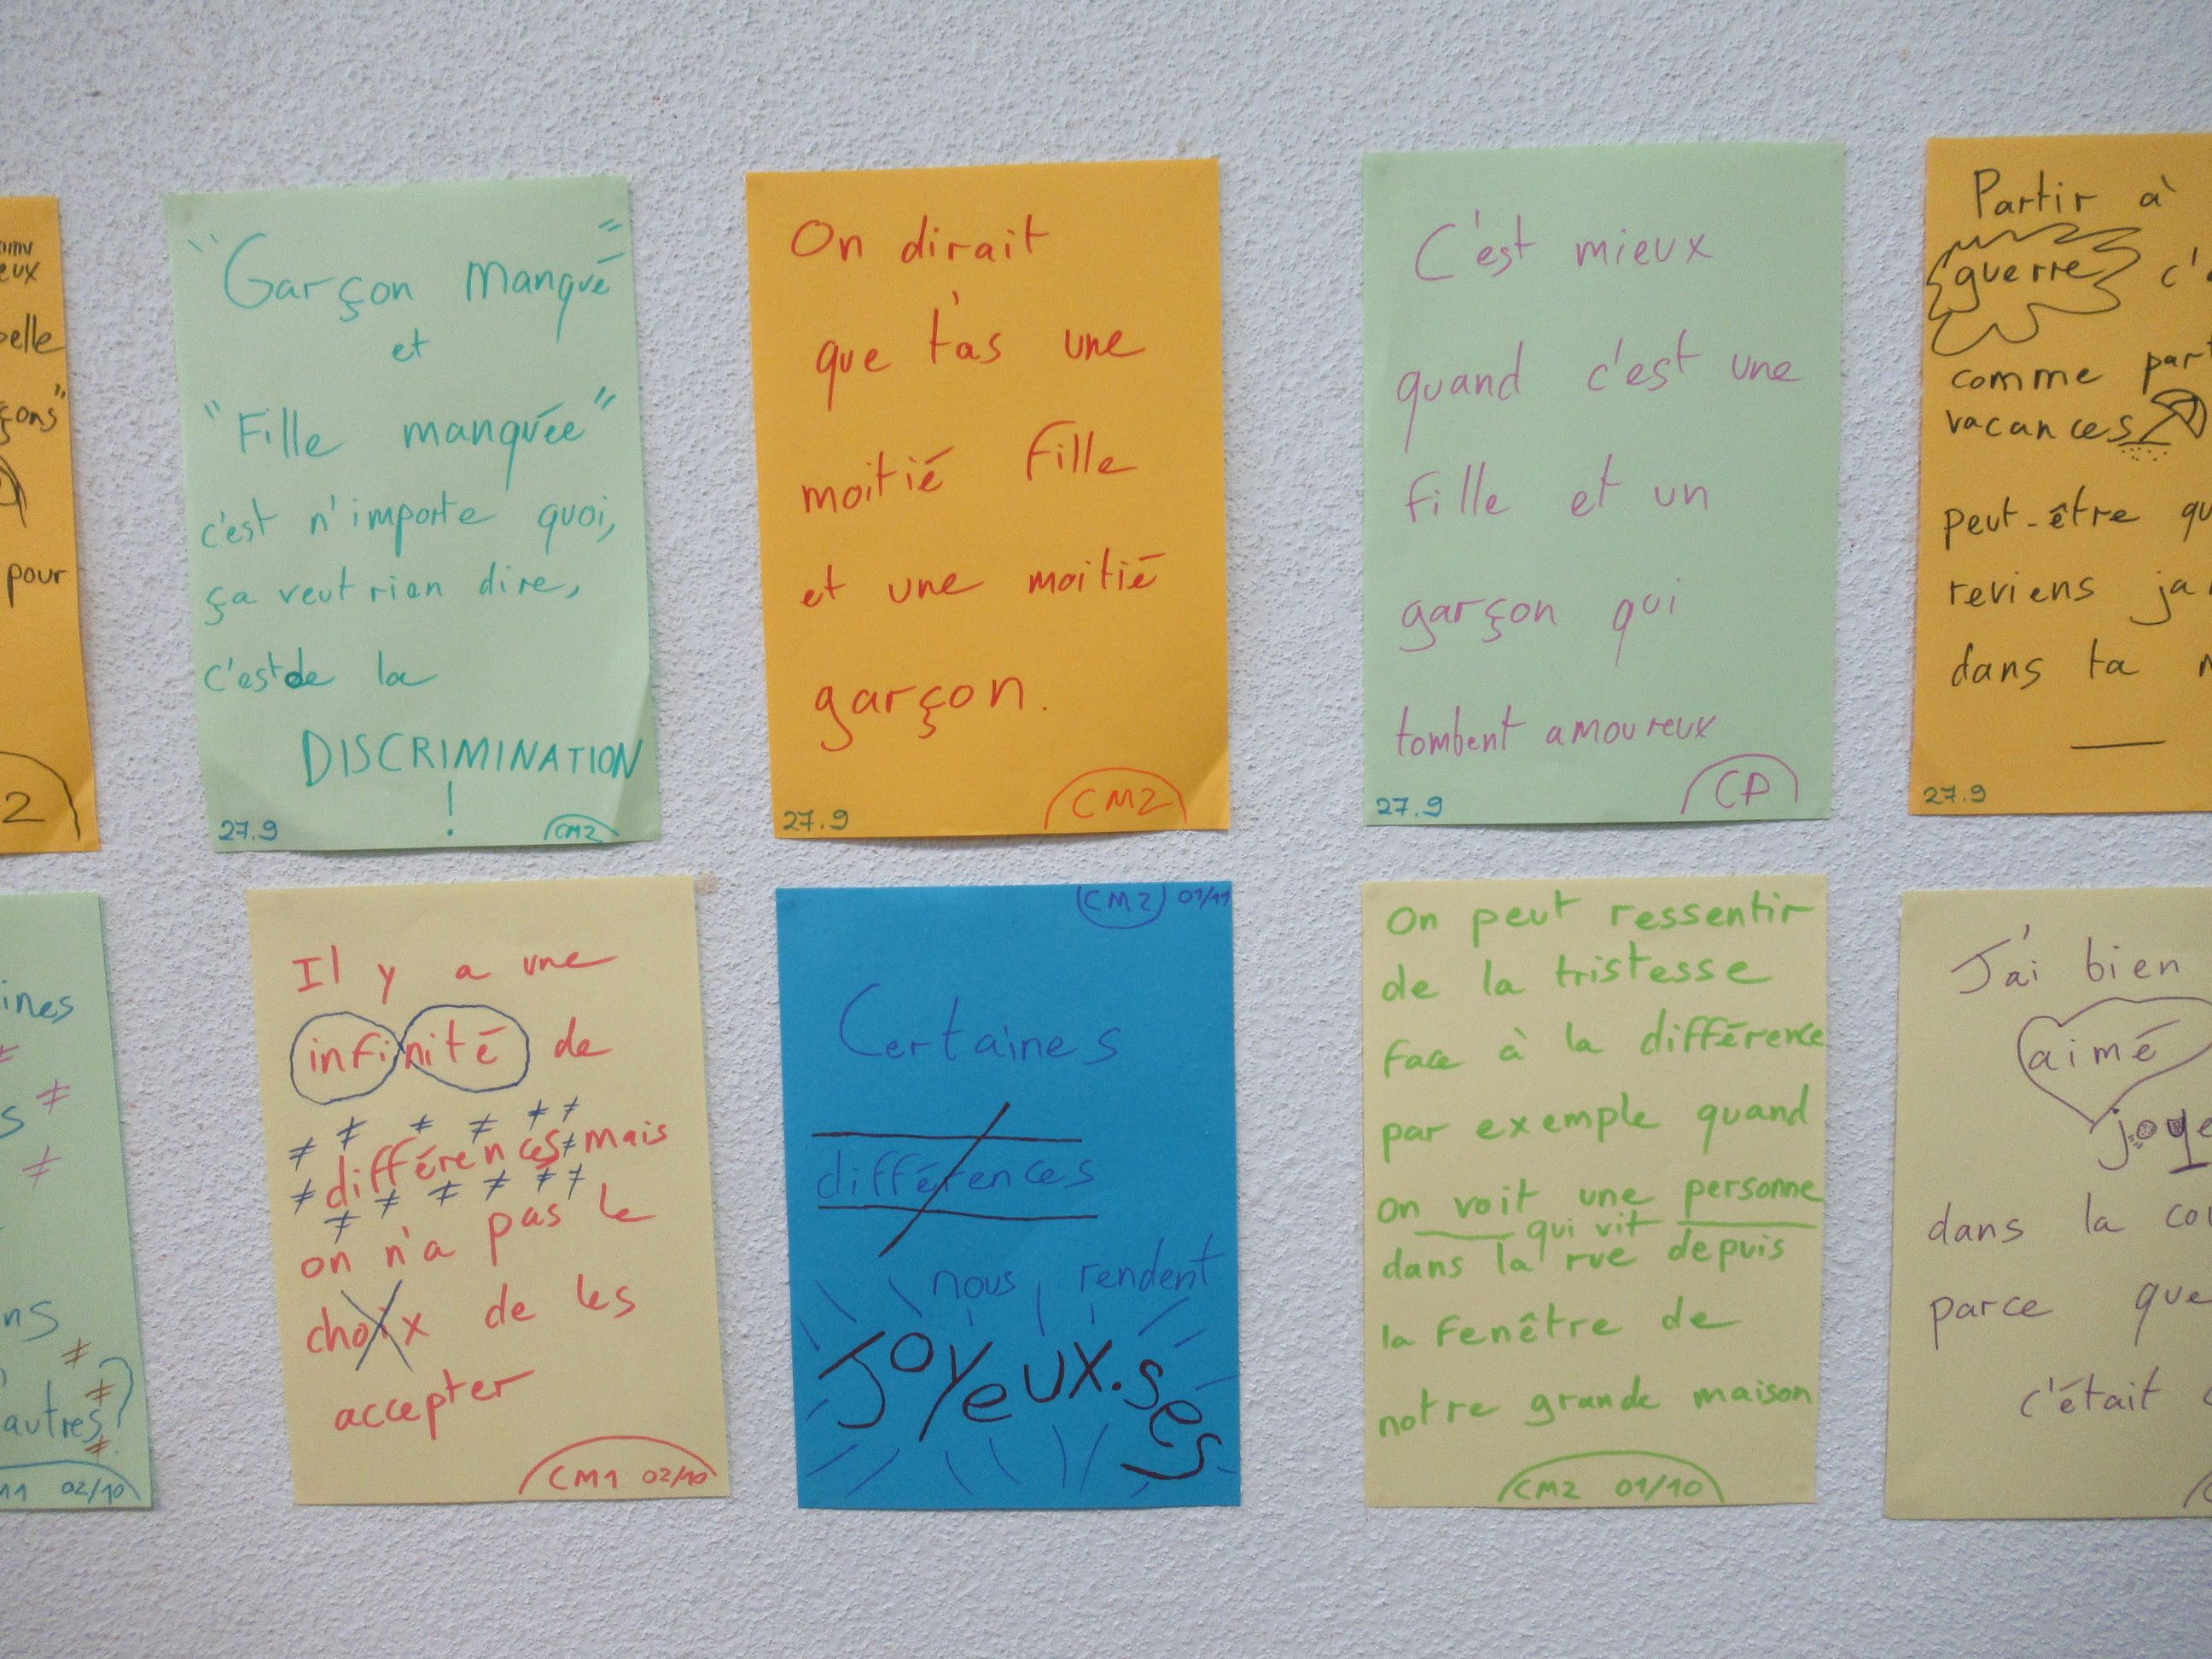 eux
çons"
pour
2
"Garçon manqué"
et
"Fille manquée"
c'est n'importe quoi,
ça veut rien dire,
c'est de la
DISCRIMINATION
!
27.9
CM2
On dirait
que t'as une
moitié fille
et une moitié
garçon.
27.9
CM2
C'est mieux
quand c'est une
fille et un
garçon qui
tombent amoureux
27.9
CP
Partir à
guerre c'
comme par
vacances
peut-être qu
reviens ja
dans ta
27.9
ines
≠
s ≠
≠
ns
≠
≠
autres?
≠
02/10
Il y a une
infinité de
≠ ≠ ≠ ≠ ≠ ≠
différences≠mais
≠ ≠ ≠ ≠ ≠ ≠ ≠
on n'a pas le
choix de les
accepter
CM1 02/10
CM2 01/11
Certaines
différences
nous rendent
joyeux.ses
On peut ressentir
de la tristesse
face à la différence
par exemple quand
on voit une personne
qui vit
dans la rue depuis
la fenêtre de
notre grande maison
CM2 01/10
J'ai bien
aimé
joye
dans la cou
parce que
c'était